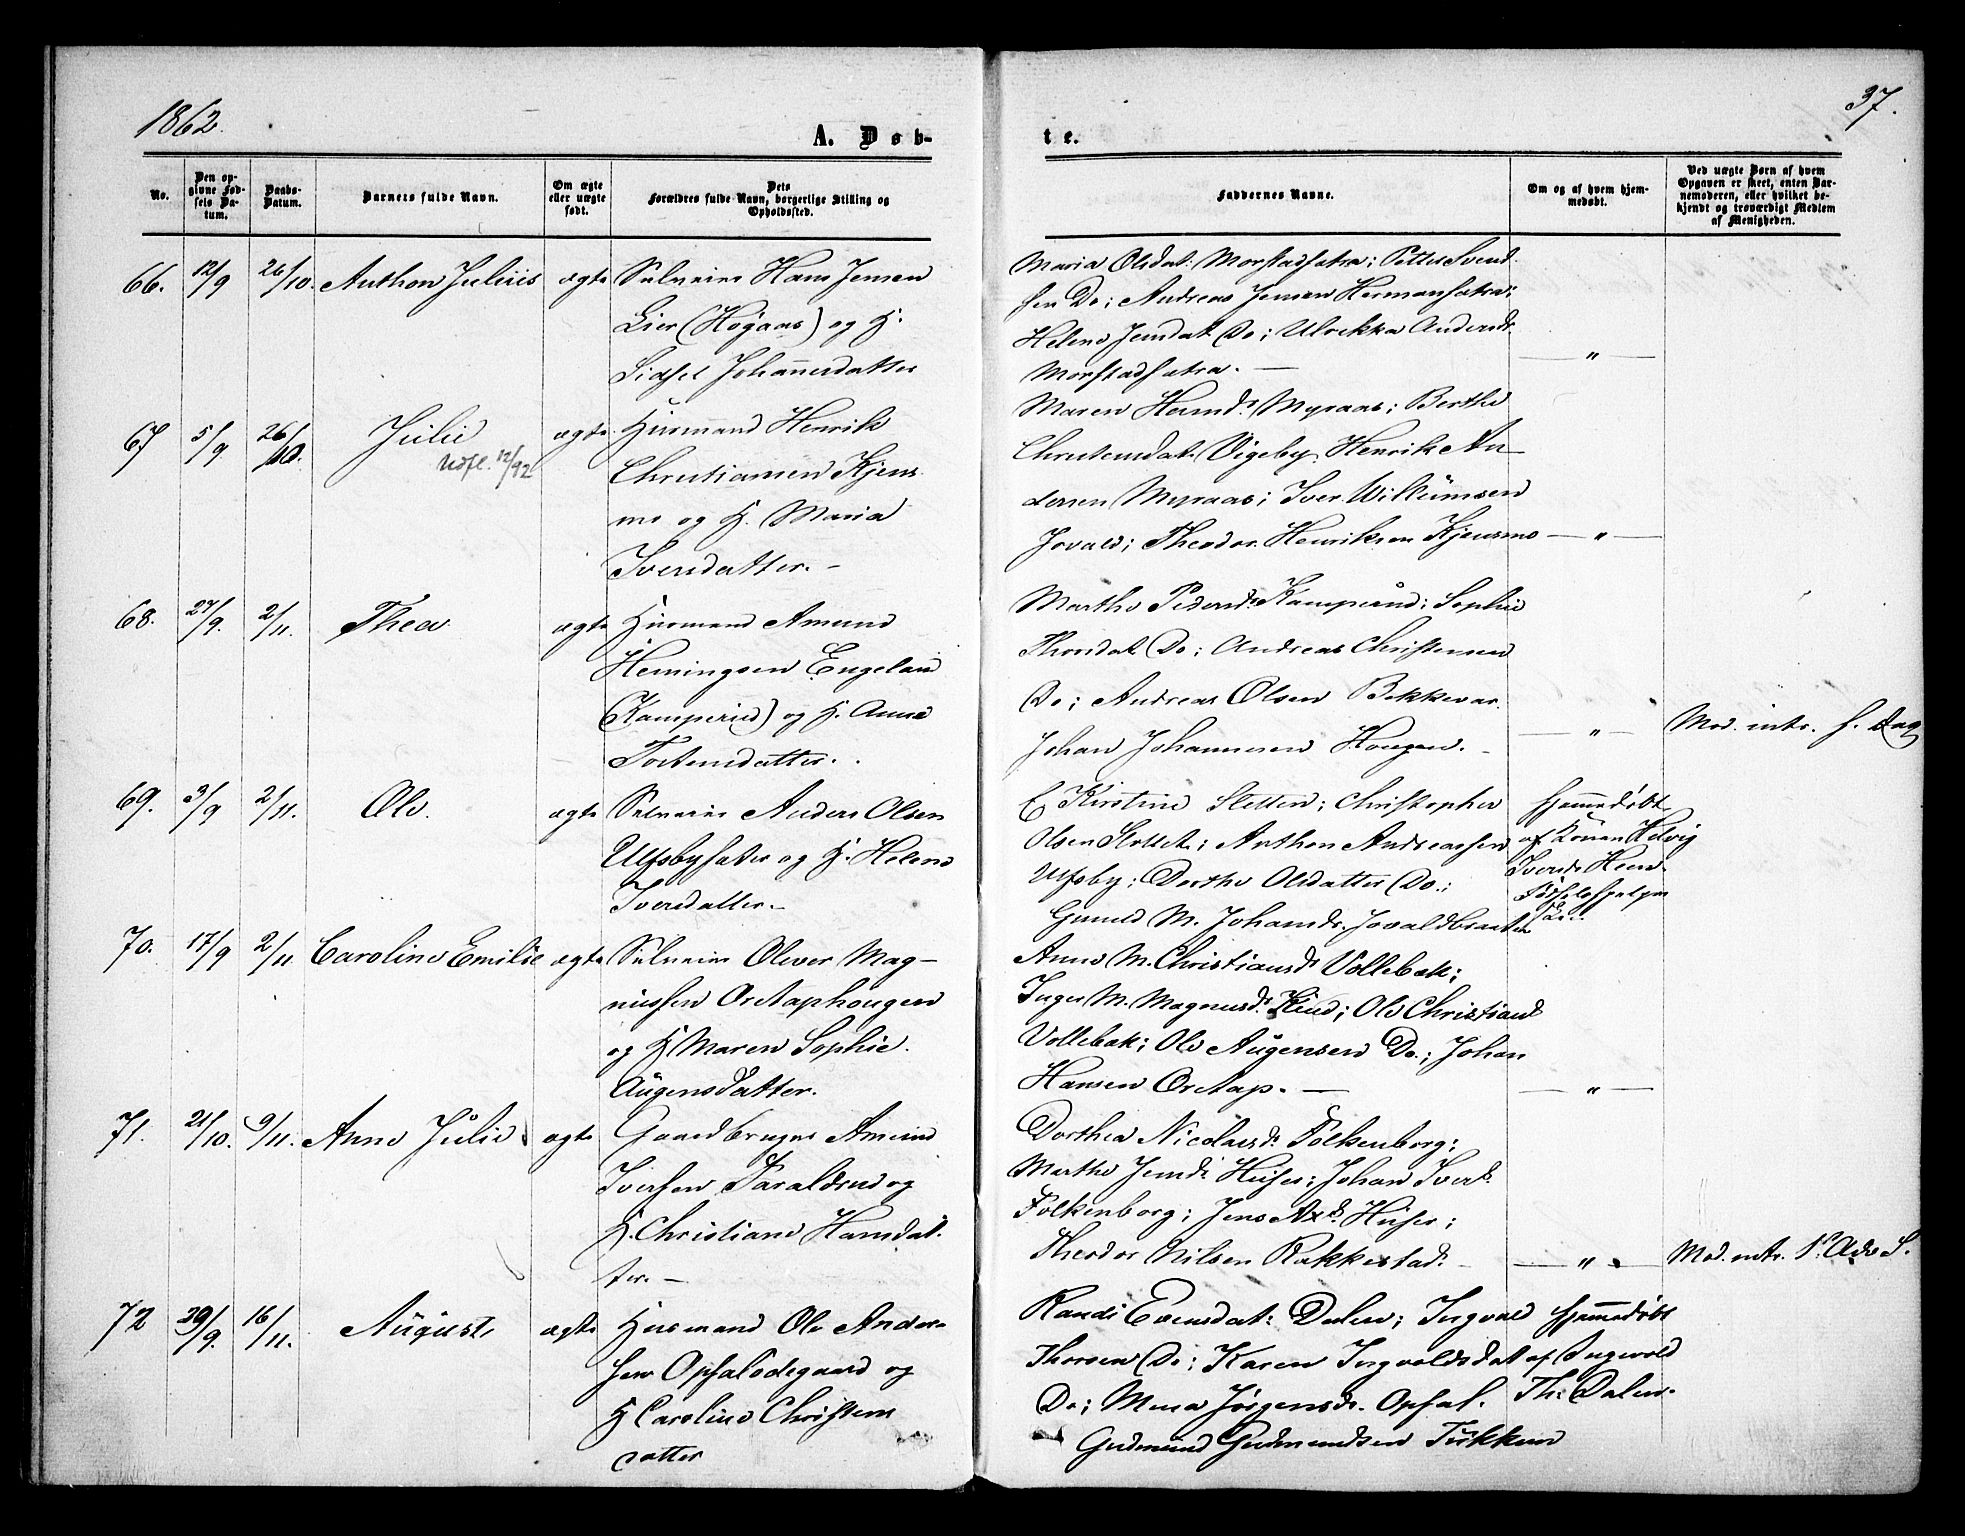 1862.
37.
A. Døb-
te.
No.
Den opgivne Fødsels Datum.
Daabs-Datum.
Barnets fulde Navn.
Om ægte eller uægte født.
Dets Forældres fulde Navn, borgerlige Stilling og Opholdssted.
Faddernes Navne.
Om og af hvem hjemmedøbt.
Ved uægte Børn af hvem Opgaven er skeet, enten Barnemoderen, eller hvilket bekjendt og troværdigt Medlem af Menigheden.
66. 12/9 26/10. Anthon Julius ægte Selveier Hans Jensen
Lier (Høgaas) og H.
Sidsel Johannesdatter
Maria Olsdat. Morstadsætra; Petter Svend
sen Do; Andreas Jensen Hermansætra;
Helene Jensdat Do; Ulrikka Andersdr.
Morstadsætra. —
— " —
67 5/9 26/10. Julie ægte. Husmand Henrik
Udfl. 12/92
Christiansen Kjens
mo og H. Maria
Iversdatter. –
Maren Hermds Myraas; Berthe
Christensdat. Vigeby. Henrik An
dersen Myraas; Iver Willumsen
Jovald; Theodor Henriksen Kjensmo — " —
68. 27/9. 2/11. Thea ægte Husmand Amund
Hemingsen Engelau
(Kamperud) og H. Anne
Tostensdatter. .
Marthe Pedersdr Kamperud; Sophie
Thordat Do; Andreas Christensen
Do; Andreas Olsen Bekkevar
Johan Johannesen Hougen. –
— " — Mod. intr. s. Dag
69. 3/9 2/11. Ole. ægte Selveier Anders Olsen
Ulfsbysæter og H. Helene
Iversdatter. –
E Kirstine Sletten; Christopher
Olsen Slottet; Anthon Andreassen
Ulfsby; Dorthe Olsdatter Do.;
Gunild M. Johansdr. Jovaldbraaten
Hjemmedøbt
af Konen Helvig
Iversdr
Fødselshjelper
70. 17/9 2/11 Caroline Emilie ægte Selveier Olever Mag-
nussen Ørtaphougen
og H Maren Sophie.
Augensdatter.
Anne M. Christiansdr Vollebæk;
Inger M. Magnusdr. Lund; Ole Christians
Vollebæk; Ole Augensen Do.; Johan
Hansen Ørtap. —
— " —
71. 21/10. 9/11. Anne Julie ægte Gaardbruger Amund
Iversen Haraldrud og
H. Christiane Hansdat.
ter. –
Dorthea Nicolaisdr Folkenborg;
Marthe Jensdr Huser; Johan Ivers.
Folkenborg; Jens Ax. Huser;
Theodor Nilsen Rakkestad. –
— " — Mod. intr. 1ste Adv. S.
72 29/9. 16/11. August ægte Husmand Ole Ander-
sen Opsalødegaard og
H Caroline Christens
datter
Randi Evensdat. Dalen; Ingvald
Thorsen Do; Karen Ingvoldsdat
Do; Mina Jørgensdr. Opsal.
Gudmund Gudmundsen Tukkun
Hjemmedøbt
af Ingvold
Th: Dalen.